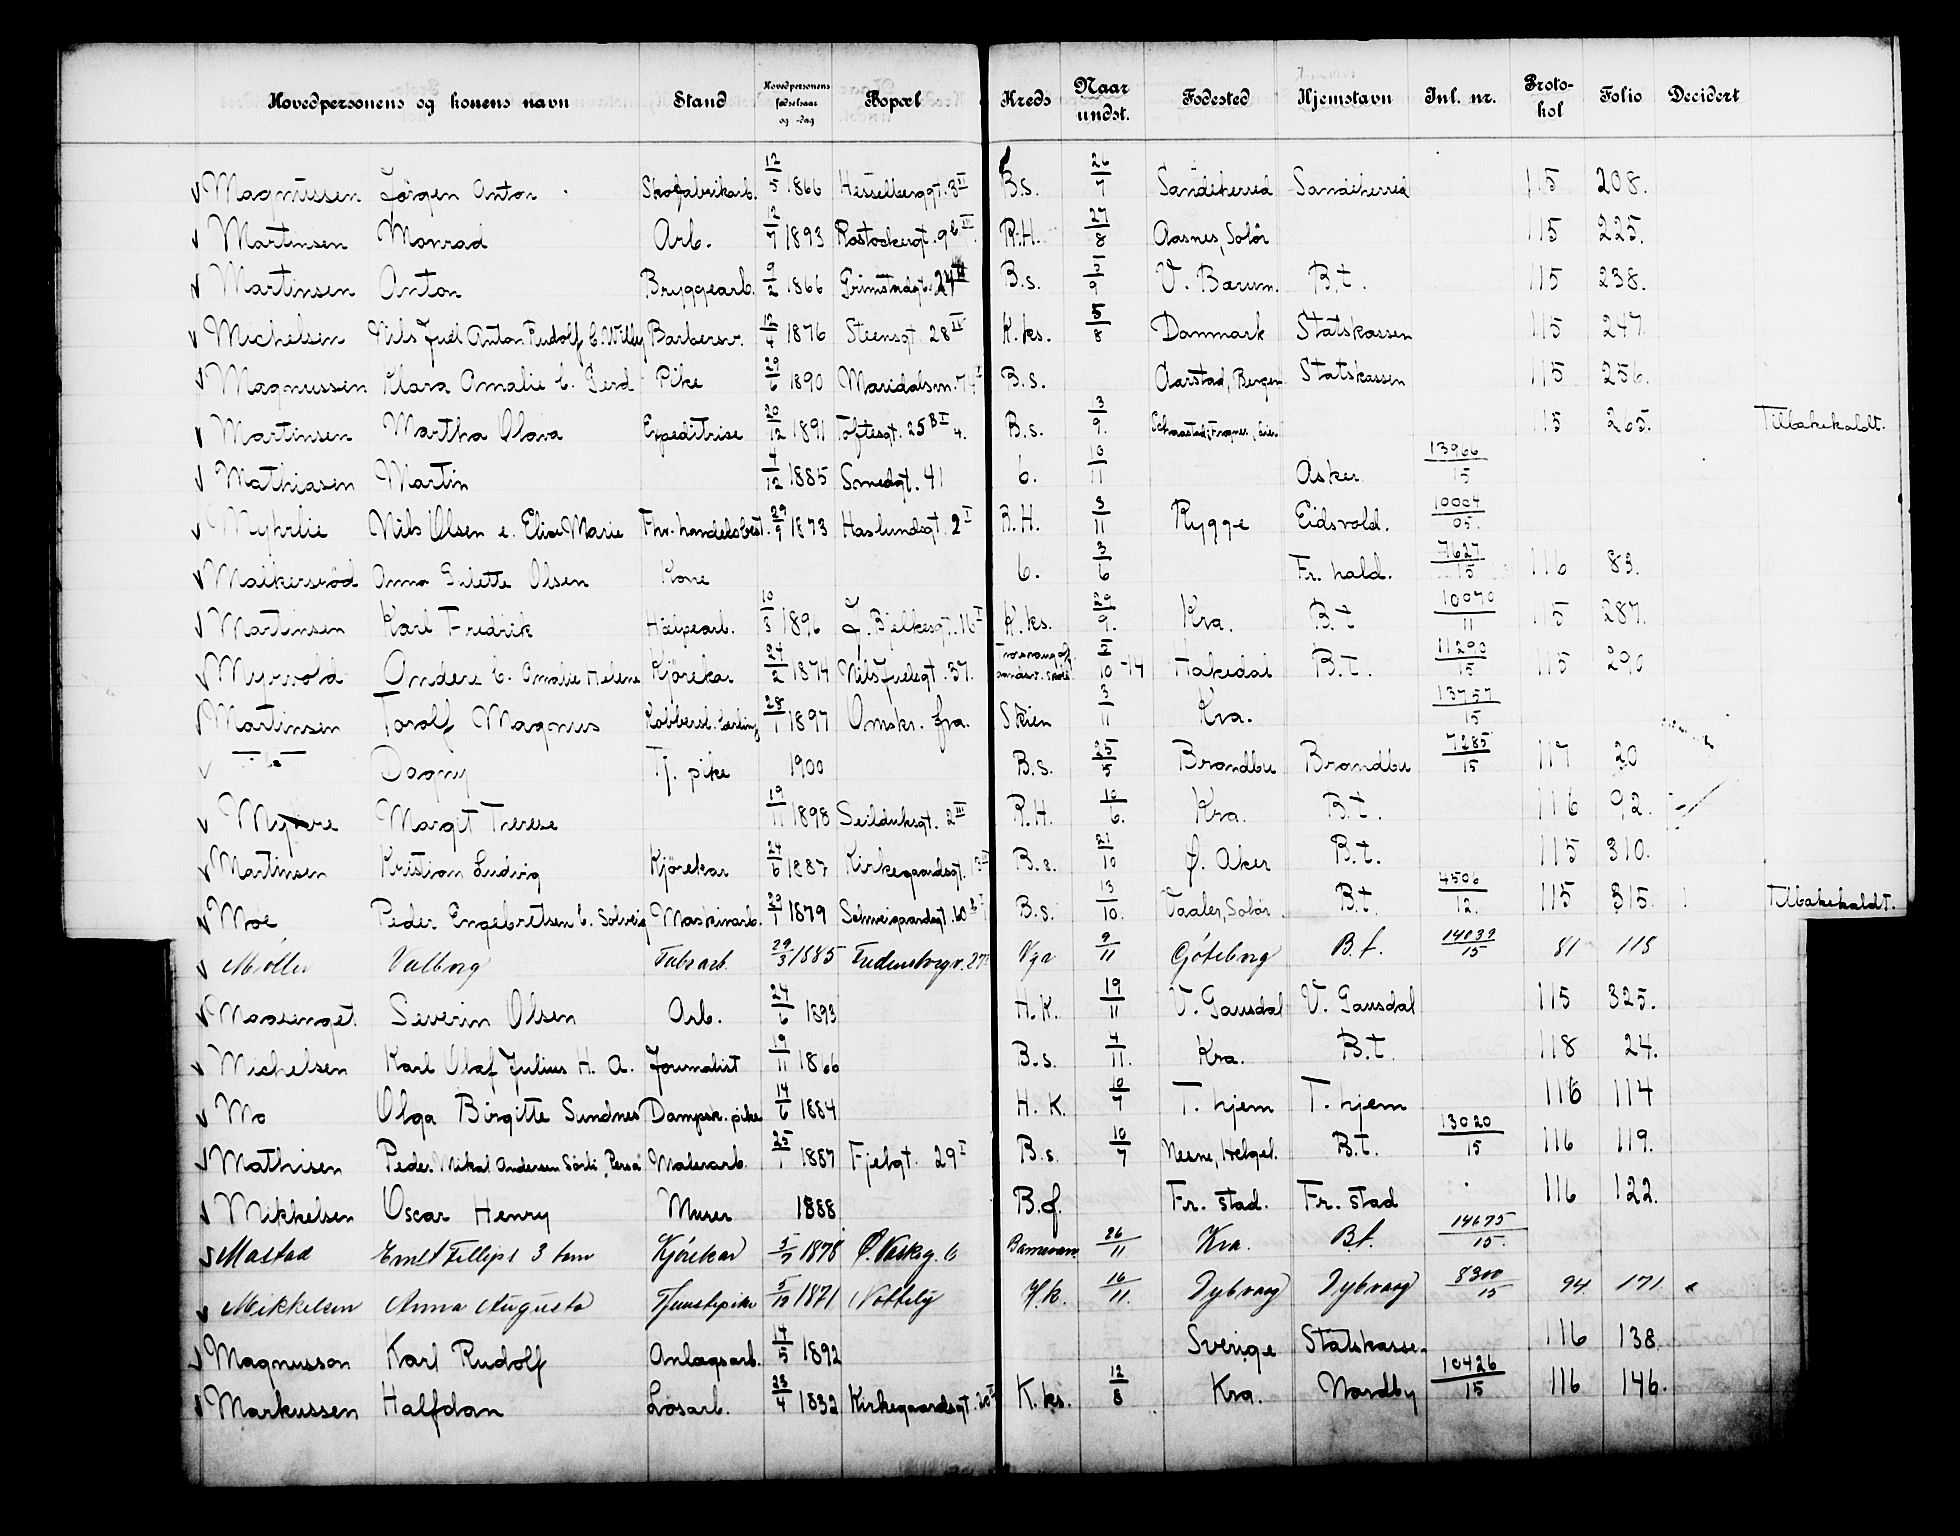 Hovedpersonens og konens navn Stand Hovedpersonens fødselsaar og -dag Bopæl Kreds Naar undst. Fødested Hjemstavn Inl. nr. Proto-kol Folio Decidert
Magnussen Jørgen Anton Skofabrikarb. 12/5 1866 Hesselberggt. 3 II B.s. 26/7 Sandeherred Sandeherred 115 208.
Martinsen Monrad Arb. 12/7 1893 Rostockergt. 9 b III R.H. 27/8 Aasnes, Solør 115 225.
Martinsen Anton Bryggearb. 9/2 1866 Grimstadgt. 24 B.s. 3/9 V. Bærum. B.t. 115 238.
Michelsen Nils Juel Anton Rudolf C. Willy Barbersv. 12/4 1876 Steensgt. 28 IV K.ks. 5/8 Danmark Statskassen 115 247.
Magnussen Klara Amalie C. Gerd Pike 29/6 1890 Maridalsvn. 74 I B.s. Aarstad, Bergen Statskassen 115 256.
Martinsen Martha Olava Expeditrise 20/12 1891 Toftesgt. 25 B I 4. B.s. 3/9. 115 265. Tilbakekaldt.
Mathiasen Martin 4/12 1885 Smedgt. 41 6. 10/11 Asker. 13966/15
Myhrlie Nils Olsen e. Elise Marie Fhv. handelsbest. 29/9 1873 Haslundsgt. 2 I R.H. 3/11 Rygge Eidsvold. 10004/05.
Malkersrød Anna Gulette Olsen Kone 6. 3/6 Fr. hald. 7627/15 116 83.
Martinsen Karl Fredrik Hjelpearb. 10/3 1896 J. Bjelkesgt. 16 I K.ks. 20/9. Kra. B.t 10070/11 115 287.
Myrvold Anders C. Amalie Helene Kjörekar 24/2 1874 Nils Juelsgt. 37. 5/10 -14 Hakedal B.t. 11290/15 115 290
Martinsen Torolf Magnus Kobbersl. lærling 28/1 1897 Omskr. fra. Skien 3/11 Kra. 13757/15
Dagny Tj. pike 1900 B.s. 25/5 Brandbu Brandbu 7285/15 117 20
Myhre Margit Therese 19/11 1898 Seilduksgt. 2 III R.H. 10/6. Kra. B.t. 116 92.
Martinsen Kristian Ludvig Kjörekar 24/6 1887 Kirkegaardsgt. 13 III B.s. 21/10 Ø. Aker B.t. 115 310.
Moe Peder Engebretsen C. Solveig Maskinarb. 29/1 1879 Schweigaardsgt. 60 B.s. 13/10. Vaaler, Solør B.t. 4506/12. 115 315. Tilbakekaldt.
Møller Valborg Fabr arb. 29/3 1885 Fredensborgv. 27 Vga 9/11 Göteborg B.t. 14039/15 81 118
Moosenget. Severin Olsen Arb. 24/6 1893 H.K. 19/11 V. Gausdal V. Gausdal 115 325.
Michelsen Karl Olaf Julius H. A. Journalist 19/11 1866 B.s. 4/11. Kra. B.t. 118 24.
Mo Olga Birgitte Sundnes Dampsk. pike 14/6 1884 H.K. 10/7 T. hjem T. hjem 116 114
Mathisen Peder Mikal Andersen Sörli "Persa" Malerarb. 25/1 1887 Fjelgt. 29 I B.s. 10/7 Nesne, Helgel. B.t. 13020/15 116 119.
Mikkelsen Oscar Henry Murer 1888 B.f. Fr. stad. Fr. stad 116 122.
Mastad Ernst Fillips 3 barn Kjörekar 5/7 1878 Ø. Vaskeg. 6 Barnevern 26/11 Kra. B.t. 14675/15.
Mikkelsen Anna Augusta Tjenestepike 5/12 1871 Nøttelig H.k. 16/11. Dybvaag Dybvaag 8300/15 94 171.
Magnusson Karl Rudolf Anlægsarb. 14/5 1892 Sverige Statskasse. 116 138.
Markussen Halfdan Løsarb. 23/4 1832 Kirkegaardsgt. 20 K.ks. 12/8 Kra. Nordby 10426/15 116 146.